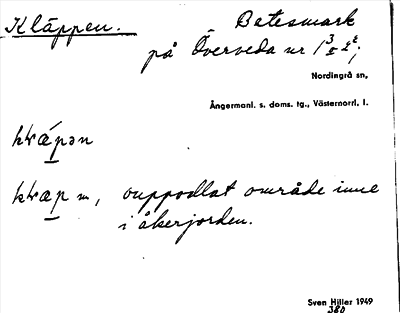 Kläppen. Betesmark
på Överveda nr 1
Nordingrå sn,
Ångermanl. s. doms. tg., Västernorrl. l.
m, ouppodlat område inne
i åkerjorden.
Sven Hiller 1949
380